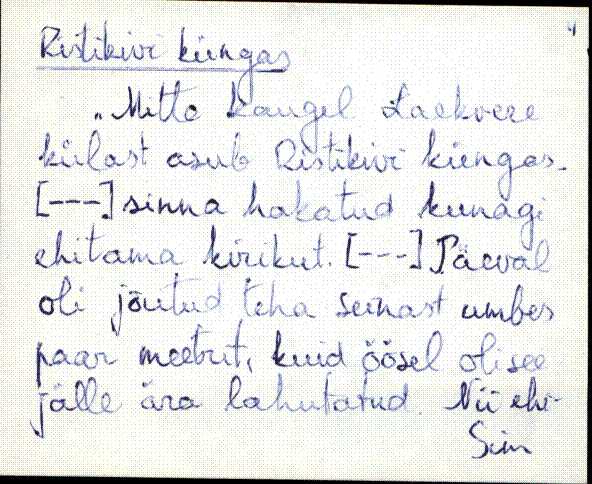 Ristikivi küngas
„Mitte kaugel Laekvere
külast asub Ristikivi küngas.
[---] sinna hakatud kunagi
ehitama kirikut. [---] Päeval
oli jõutud teha seinast umbes
paar meetrit, kuid öösel oli see
jälle ära lahutatud. Nii ehi-